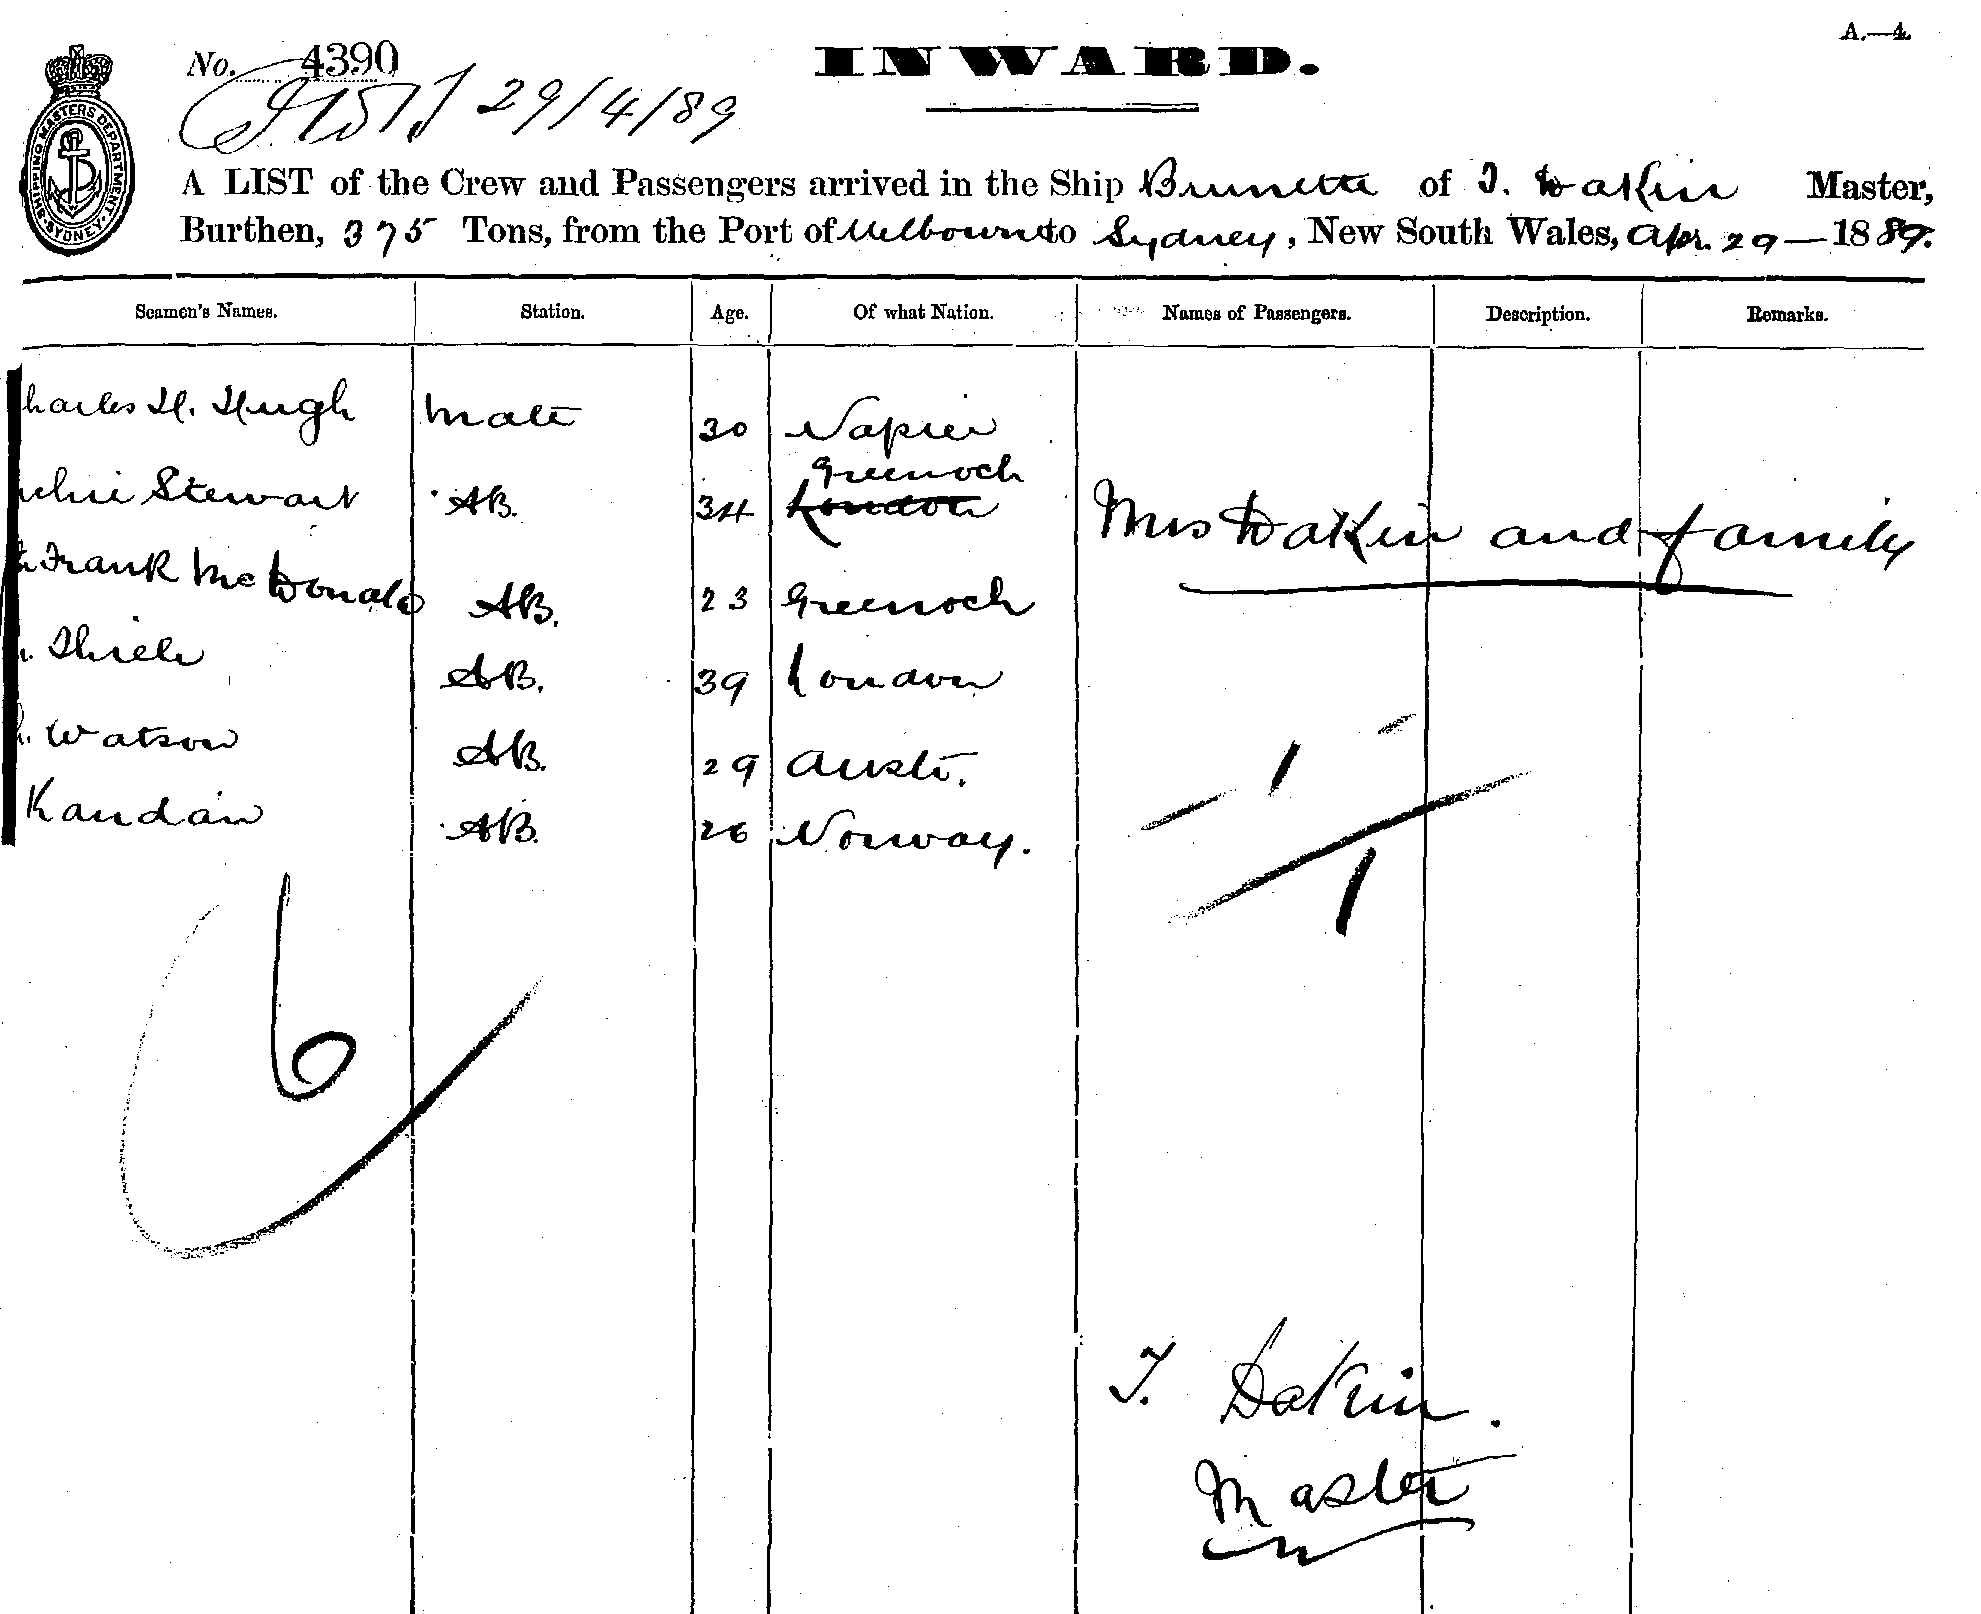 A.—4.
No. 4390
INWARD.
29/4/89
SHIPPING MASTERS DEPARTMENT SYDNEY
A LIST of the Crew and Passengers arrived in the Ship Brunette of T. Dakin Master,
Burthen, 375 Tons, from the Port of Melbourne to Sydney, New South Wales, Apr. 29 — 1889.
Seamen's Names. Station. Age. Of what Nation. Names of Passengers. Description. Remarks.
harles H. Hugh Mate 30 Napier
Stewart AB. 34 Greenoch London
Frank McDonald AB. 23 Greenoch
Mrs Dakin and family
Thiele AB. 39 London
Watson AB. 29 Austr.
Kandan AB. 26 Norway.
1
1
6
T. Dakin.
Master